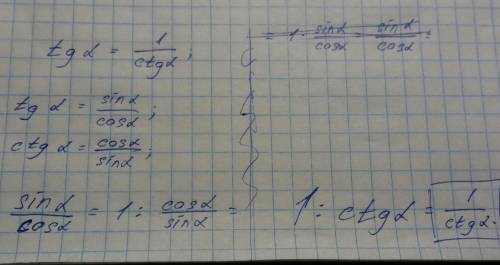 tg α = 1/ctg α;
tg α = sin α/cos α;
ctg α = cos α/sin α;
sin α/cos α = 1 : cos α/sin α =
= 1 · sin α/cos α = sin α/cos α =
1 : ctg α = 1/ctg α.